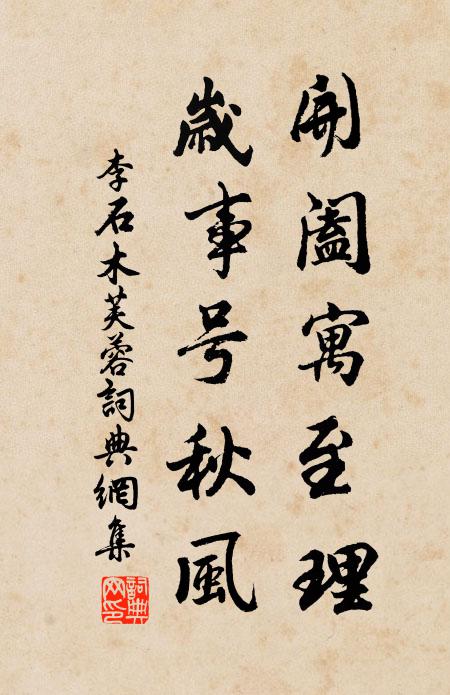 開阖寓至理
歲事号秋風
李石木芙蓉詞典網集
詞典網印